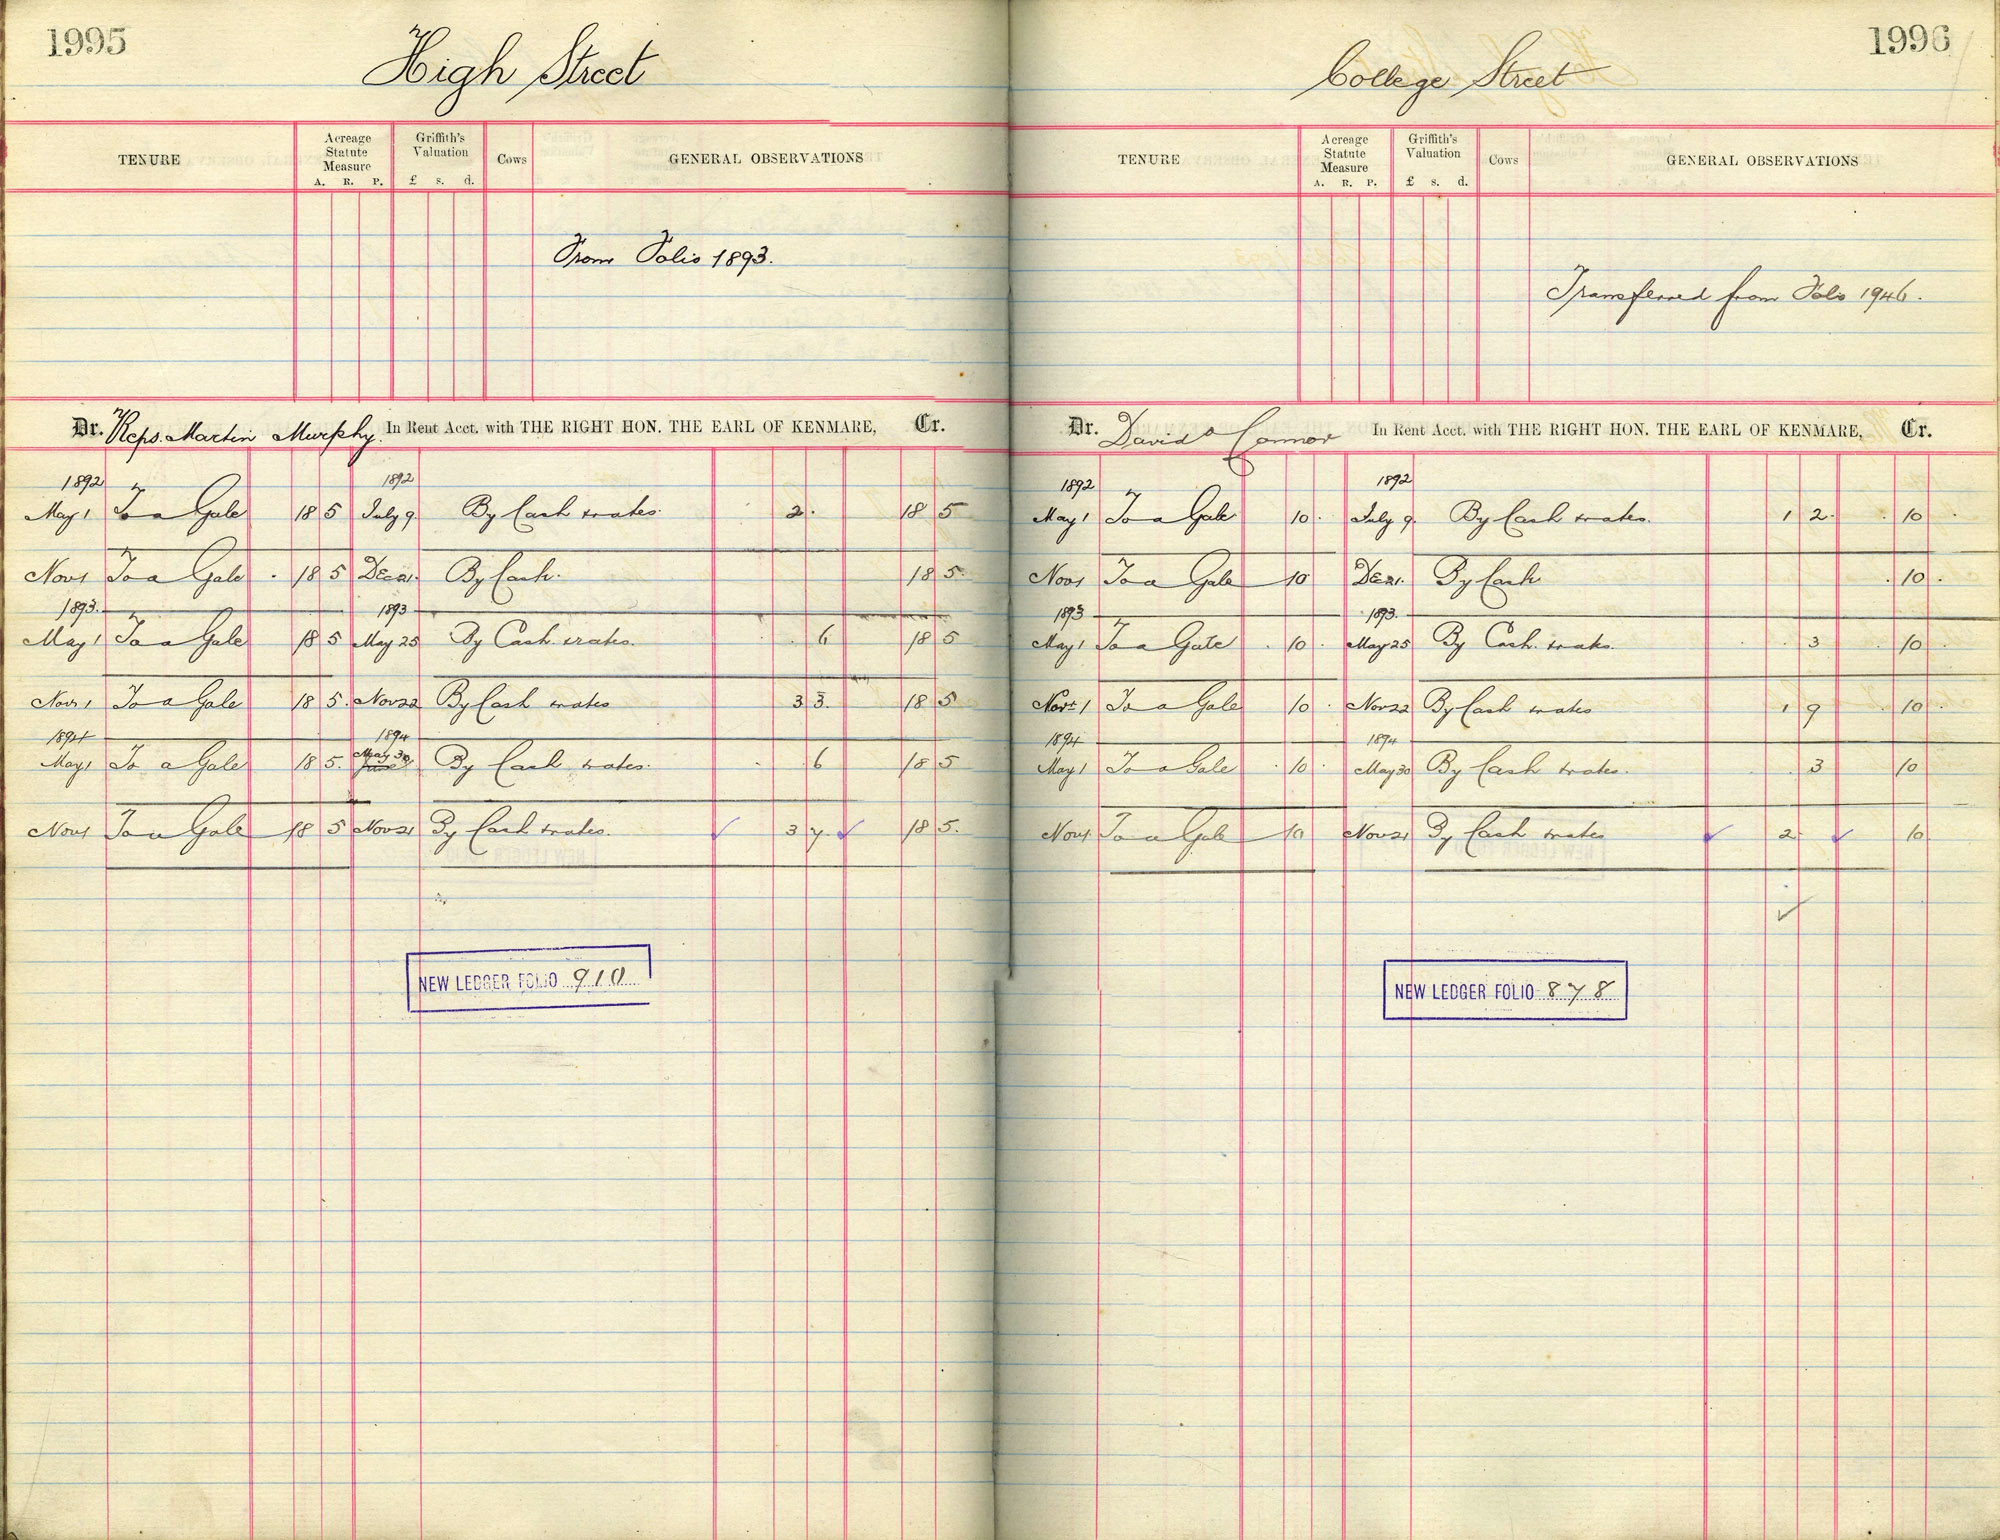 1995
High Street
TENURE Acreage Statute Measure A. R. P. Griffith's Valuation £ s. d. Cows GENERAL OBSERVATIONS
From Folio 1893.
Dr. Reps. Martin Murphy. In Rent Acct. with THE RIGHT HON. THE EARL OF KENMARE, Cr.
1892 1892
May 1 To a Gale 18 5 July 9. By Cash & rates. 2. 18 5
Nov 1 To a Gale 18 5 Dec 21. By Cash. 18 5
1893. 1893
May 1 To a Gale 18 5 May 25 By Cash. & rates. 6 18 5
Nov 1 To a Gale 18 5. Nov 22 By Cash & rates 3 3. 18 5
1894 1894
May 1 To a Gale 18 5. May 30 By Cash & rates. 6 18 5
Nov 1 To a Gale 18 5 Nov 21 By Cash & rates. 3 7. 18 5.
NEW LEDGER FOLIO 910
1996
College Street
TENURE Acreage Statute Measure A. R. P. Griffith's Valuation £ s. d. Cows GENERAL OBSERVATIONS
Transferred from Folio 1946.
Dr. David O Connor In Rent Acct. with THE RIGHT HON. THE EARL OF KENMARE, Cr.
1892 1892
May 1 To a Gale 10 July 9. By Cash & rates. 1 2 10
Nov 1 To a Gale 10 Dec 21. By Cash 10
1893 1893.
May 1 To a Gale 10 May 25 By Cash. & rates. 3 10
Nov 1 To a Gale 10 Nov 22 By Cash & rates 1 9 10
1894 1894
May 1 To a Gale 10 May 30 By Cash & rates. 3 10
Nov 1 To a Gale 10 Nov 21 By Cash & rates 2 10
NEW LEDGER FOLIO 878